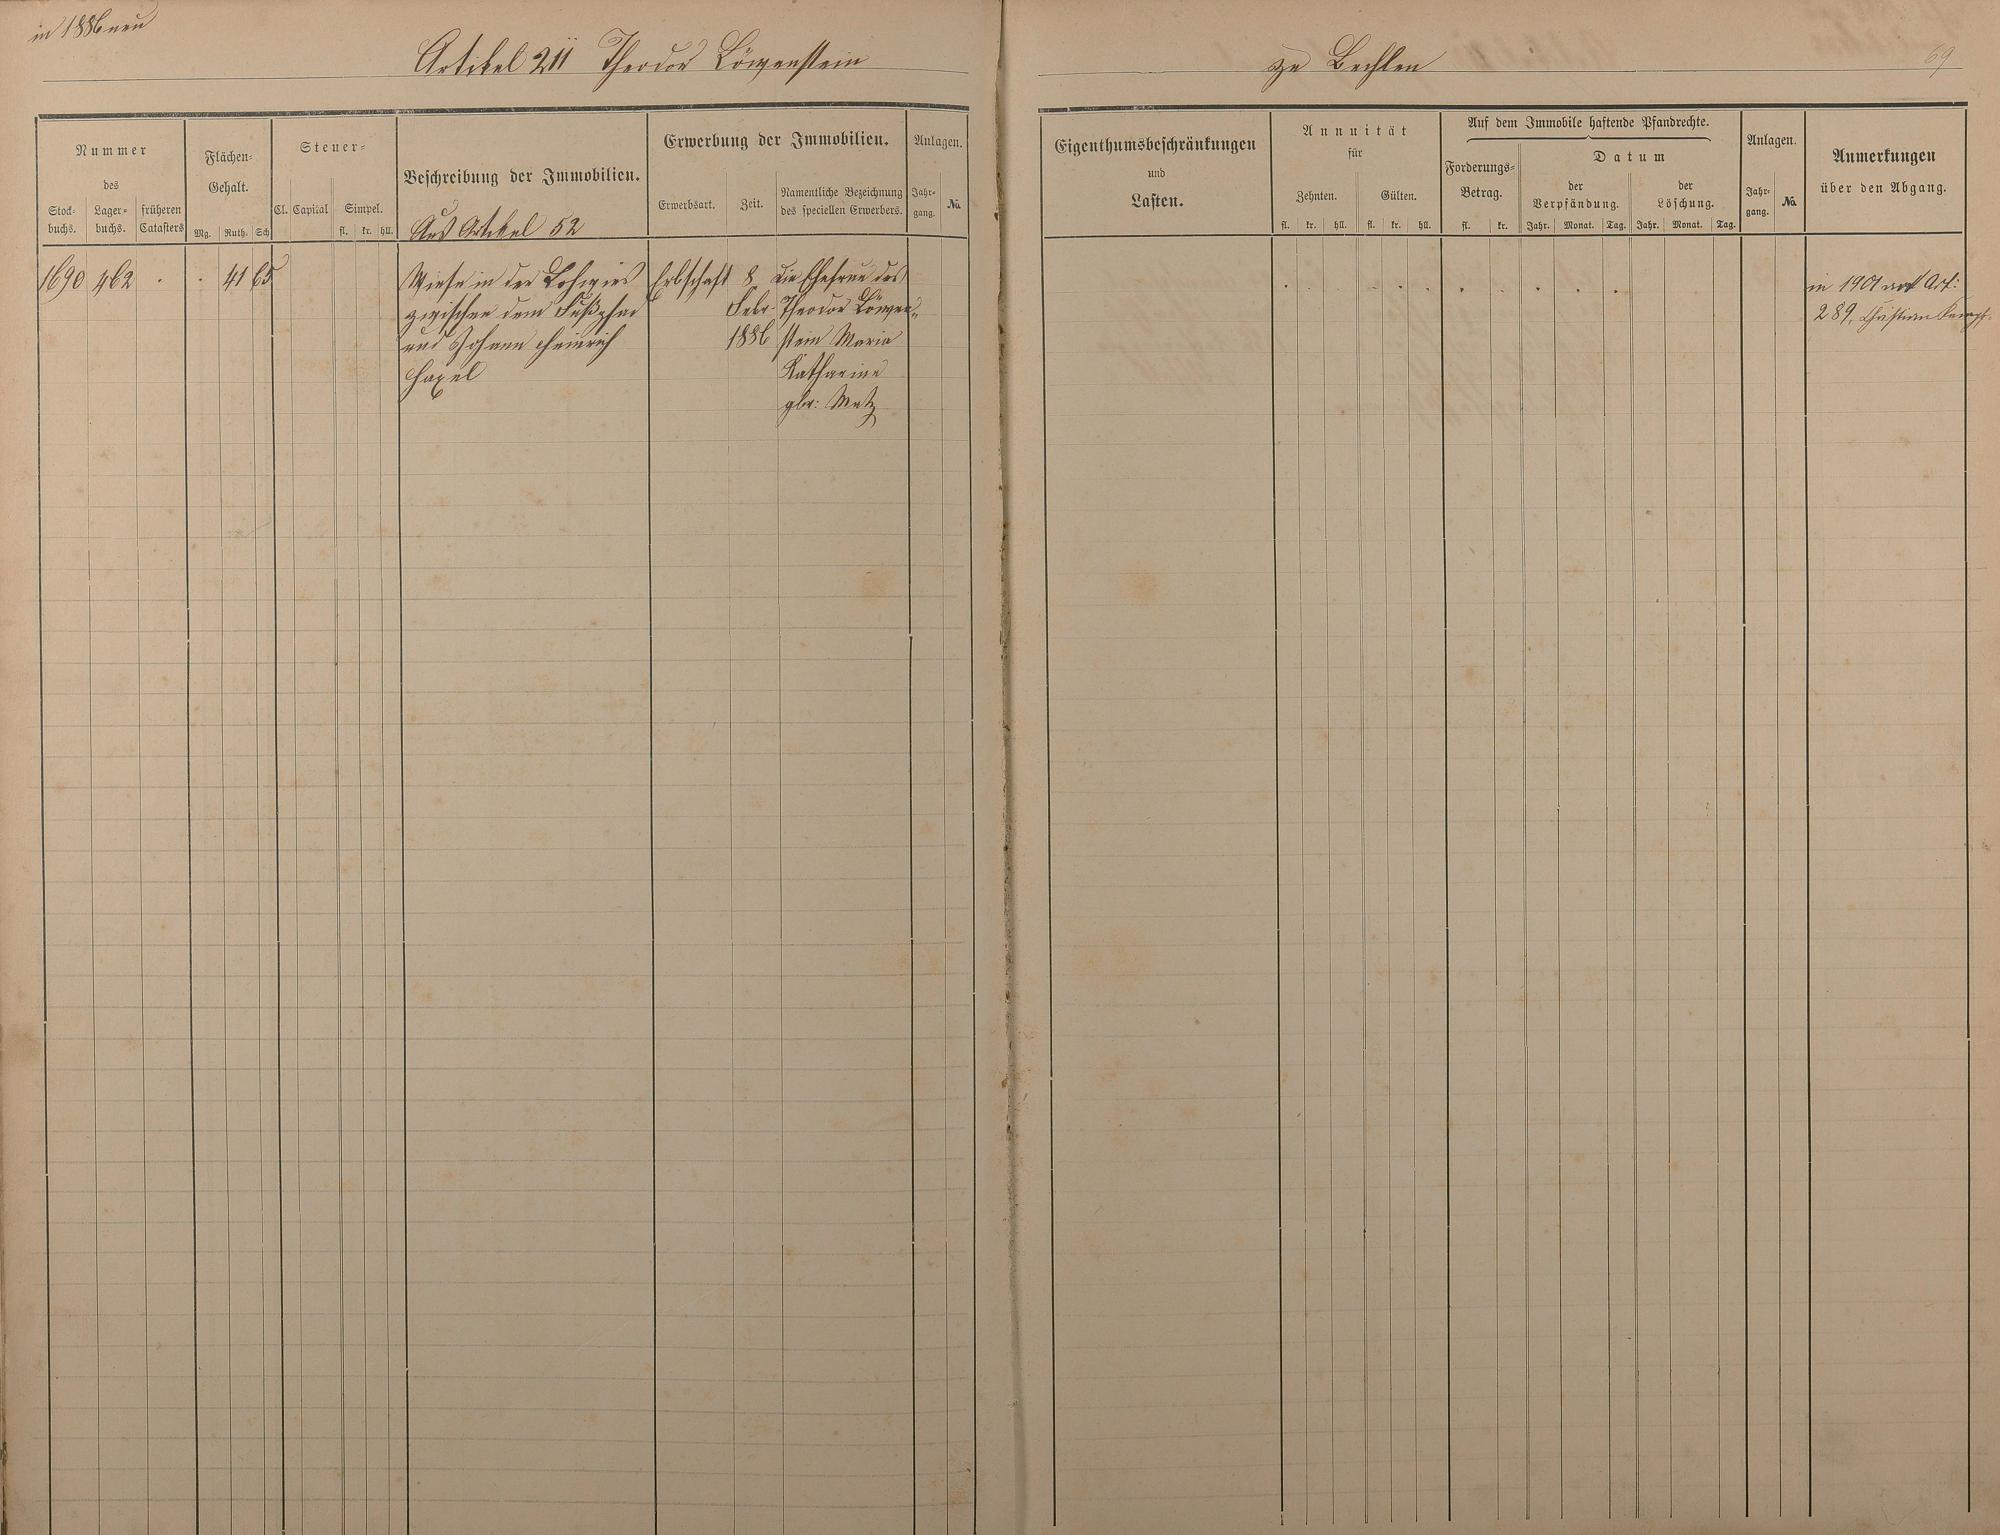 in 1886 neu
Artikel 211 Theodor Löwenstein
zu Bechlen
69
Nummer
des
Stock-
buchs.
Lager-
buchs.
früheren
Catasters
Flächen-
Gehalt.
Mg. Ruth. Sch
Steuer-
Cl. Capital Simpel.
fl. kr. hll.
Beschreibung der Immobilien.
Aus Artikel 52
Erwerbung der Immobilien.
Erwerbsart. Zeit.
Namentliche Bezeichnung
des speciellen Erwerbers.
Anlagen.
Jahr-
gang.
No.
Eigenthumsbeschränkungen
und
Lasten.
Annuität
für
Zehnten. Gülten.
fl. kr. hll. fl. kr. hll.
Auf dem Immobile haftende Pfandrechte.
Forderungs-
Betrag.
fl. kr.
Datum
der
Verpfändung.
der
Löschung.
Jahr. Monat. Tag. Jahr. Monat. Tag.
Anlagen.
Jahr-
gang.
No.
Anmerkungen
über den Abgang.
1690 462 . . 41 65
Wiese in der
zwischen dem Fußpfad
und Johann Heinrich
Haxel
Erbschaft
8
Febr.
1886
die Ehefrau des
Theodor Löwen-
stein Maria
Katharina
gbr: Metz
in 1901 auf Art:
289, Christian